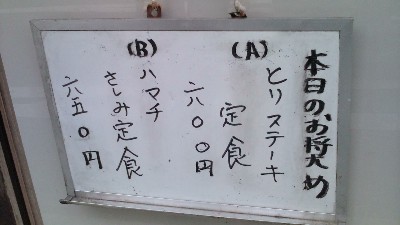 本日のお奨め
(A)
とりステーキ
定食
六〇〇円
(B)
ハマチ
さしみ定食
六五〇円